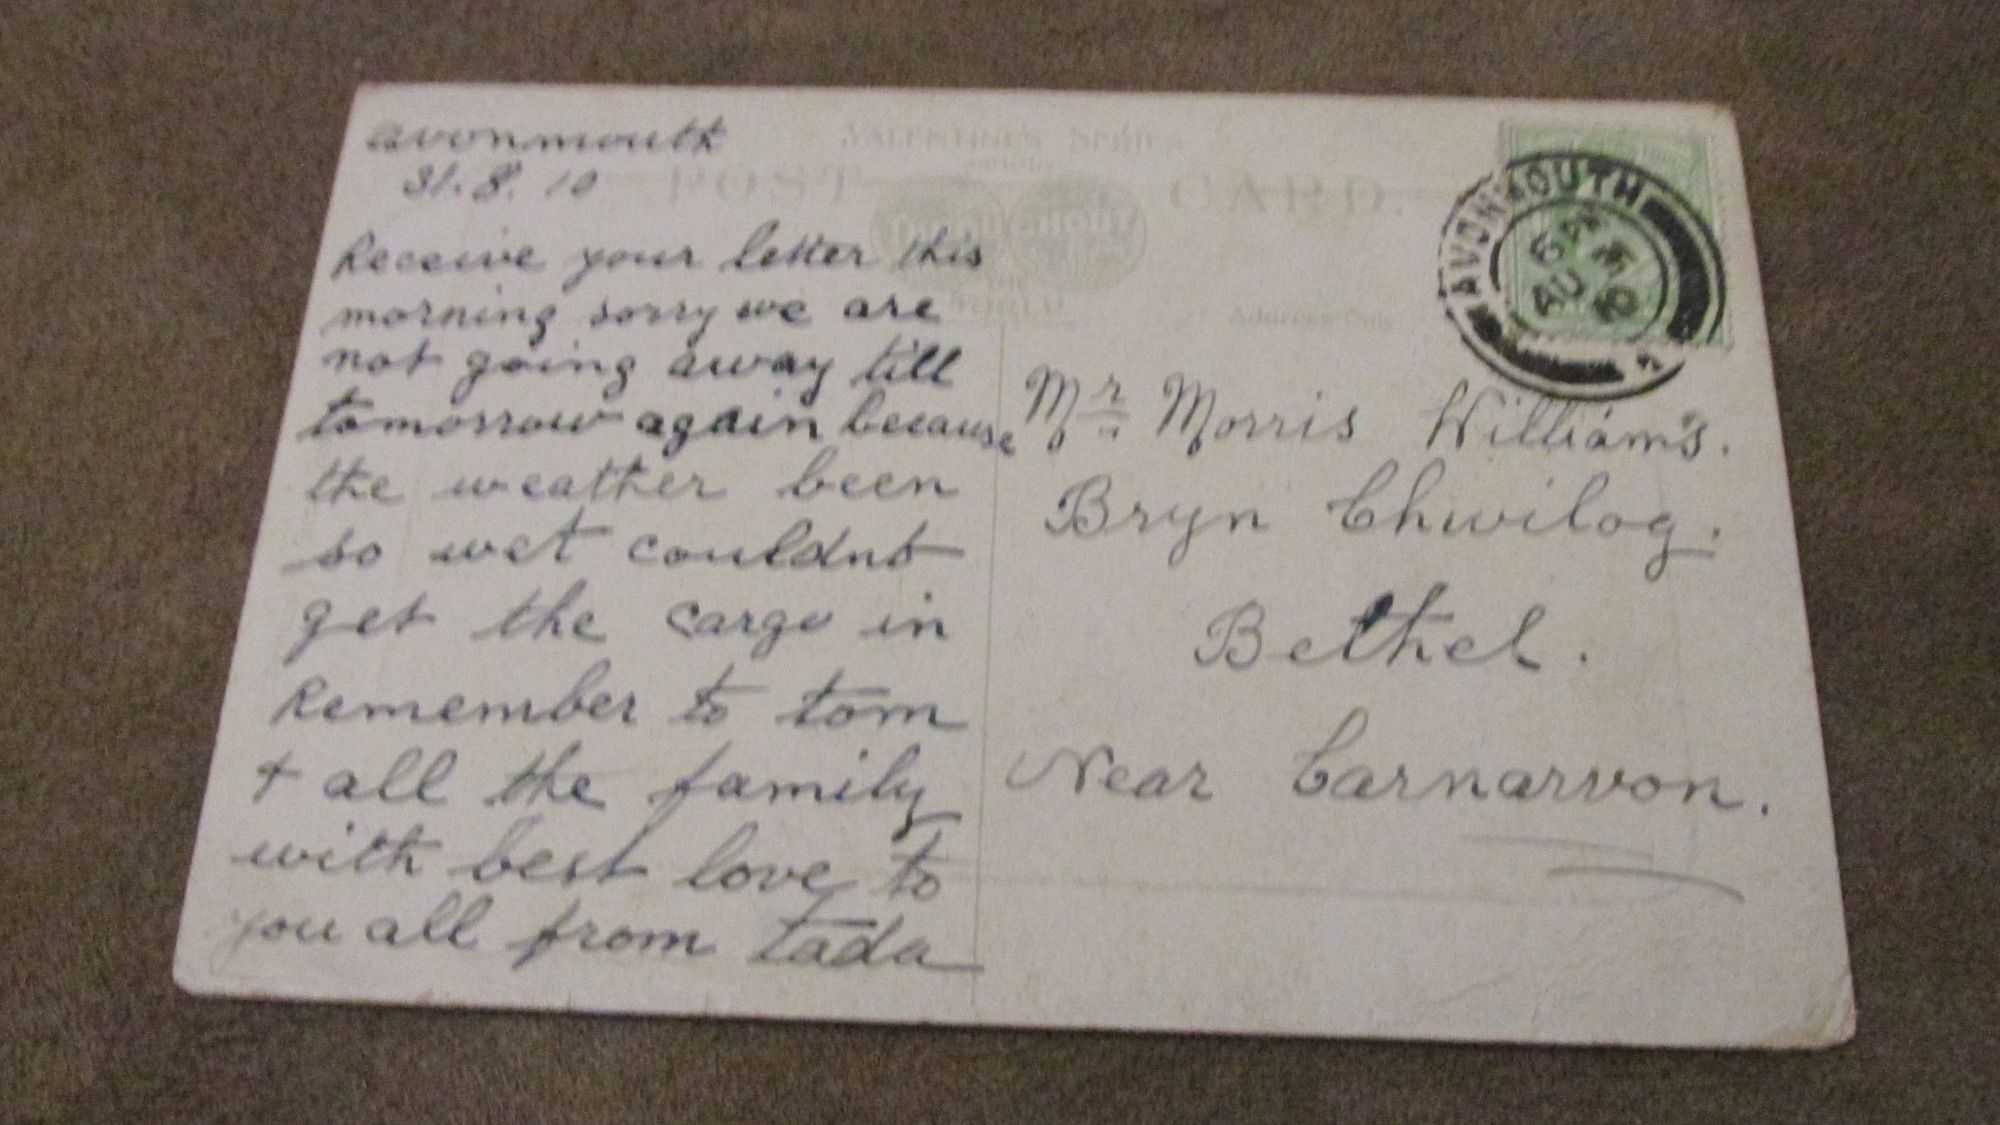 avonmouth
31. 8. 10
Receive your letter this
morning sorry we are
not going away till
tomorrow again because
the weather been
so wet couldnt
get the cargo in
Remember to tom
+ all the family
with best love to
you all from tada
VALENTINE'S SERIES
POST CARD.
WORLD
Address Only
AVONMOUTH
AU
10
Mr Morris Williams.
Bryn Chwilog.
Bethel.
Near Carnarvon.